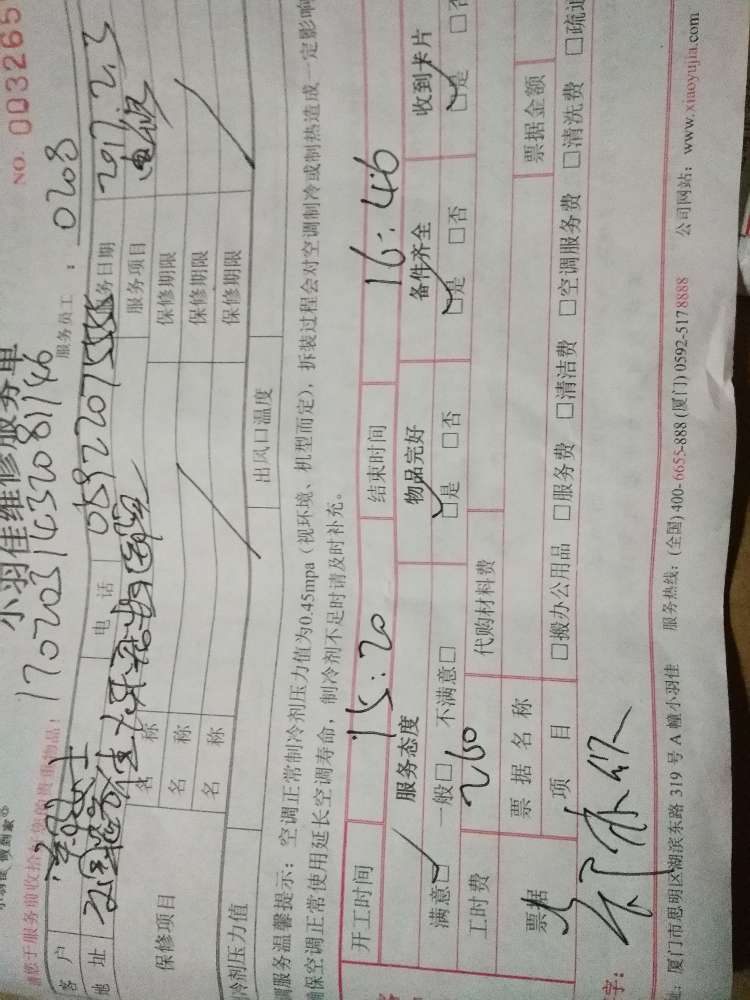 小羽佳 做到家®
NO. 003265
小羽佳维修服务单
1702031432081146
服务员工： 0208
请您于服务前收拾好您的贵重物品！
客 户
电 话
服务日期 2017.2.3
地 址
服务项目
保修项目
名 称
保修期限
名 称
保修期限
名 称
保修期限
制冷剂压力值
出风口温度
调服务温馨提示：空调正常制冷剂压力值为0.45mpa（视环境、机型而定），拆装过程会对空调制冷或制热造成一定影响
确保空调正常使用延长空调寿命，制冷剂不足时请及时补充。
开工时间 15:20 结束时间 16:46
服务态度 物品完好 备件齐全 收到卡片
满意□ 一般□ 不满意□ □是 □否 □是 □否 □是 □否
工时费 260 代购材料费
票据 票据名称 票据金额
项 目 □搬办公用品 □服务费 □清洁费 □空调服务费 □清洗费 □疏通
字：
厦门市思明区湖滨东路 319 号 A 幢小羽佳 服务热线：(全国)400-6655-888 (厦门) 0592-5178888 公司网站：www.xiaoyujia.com